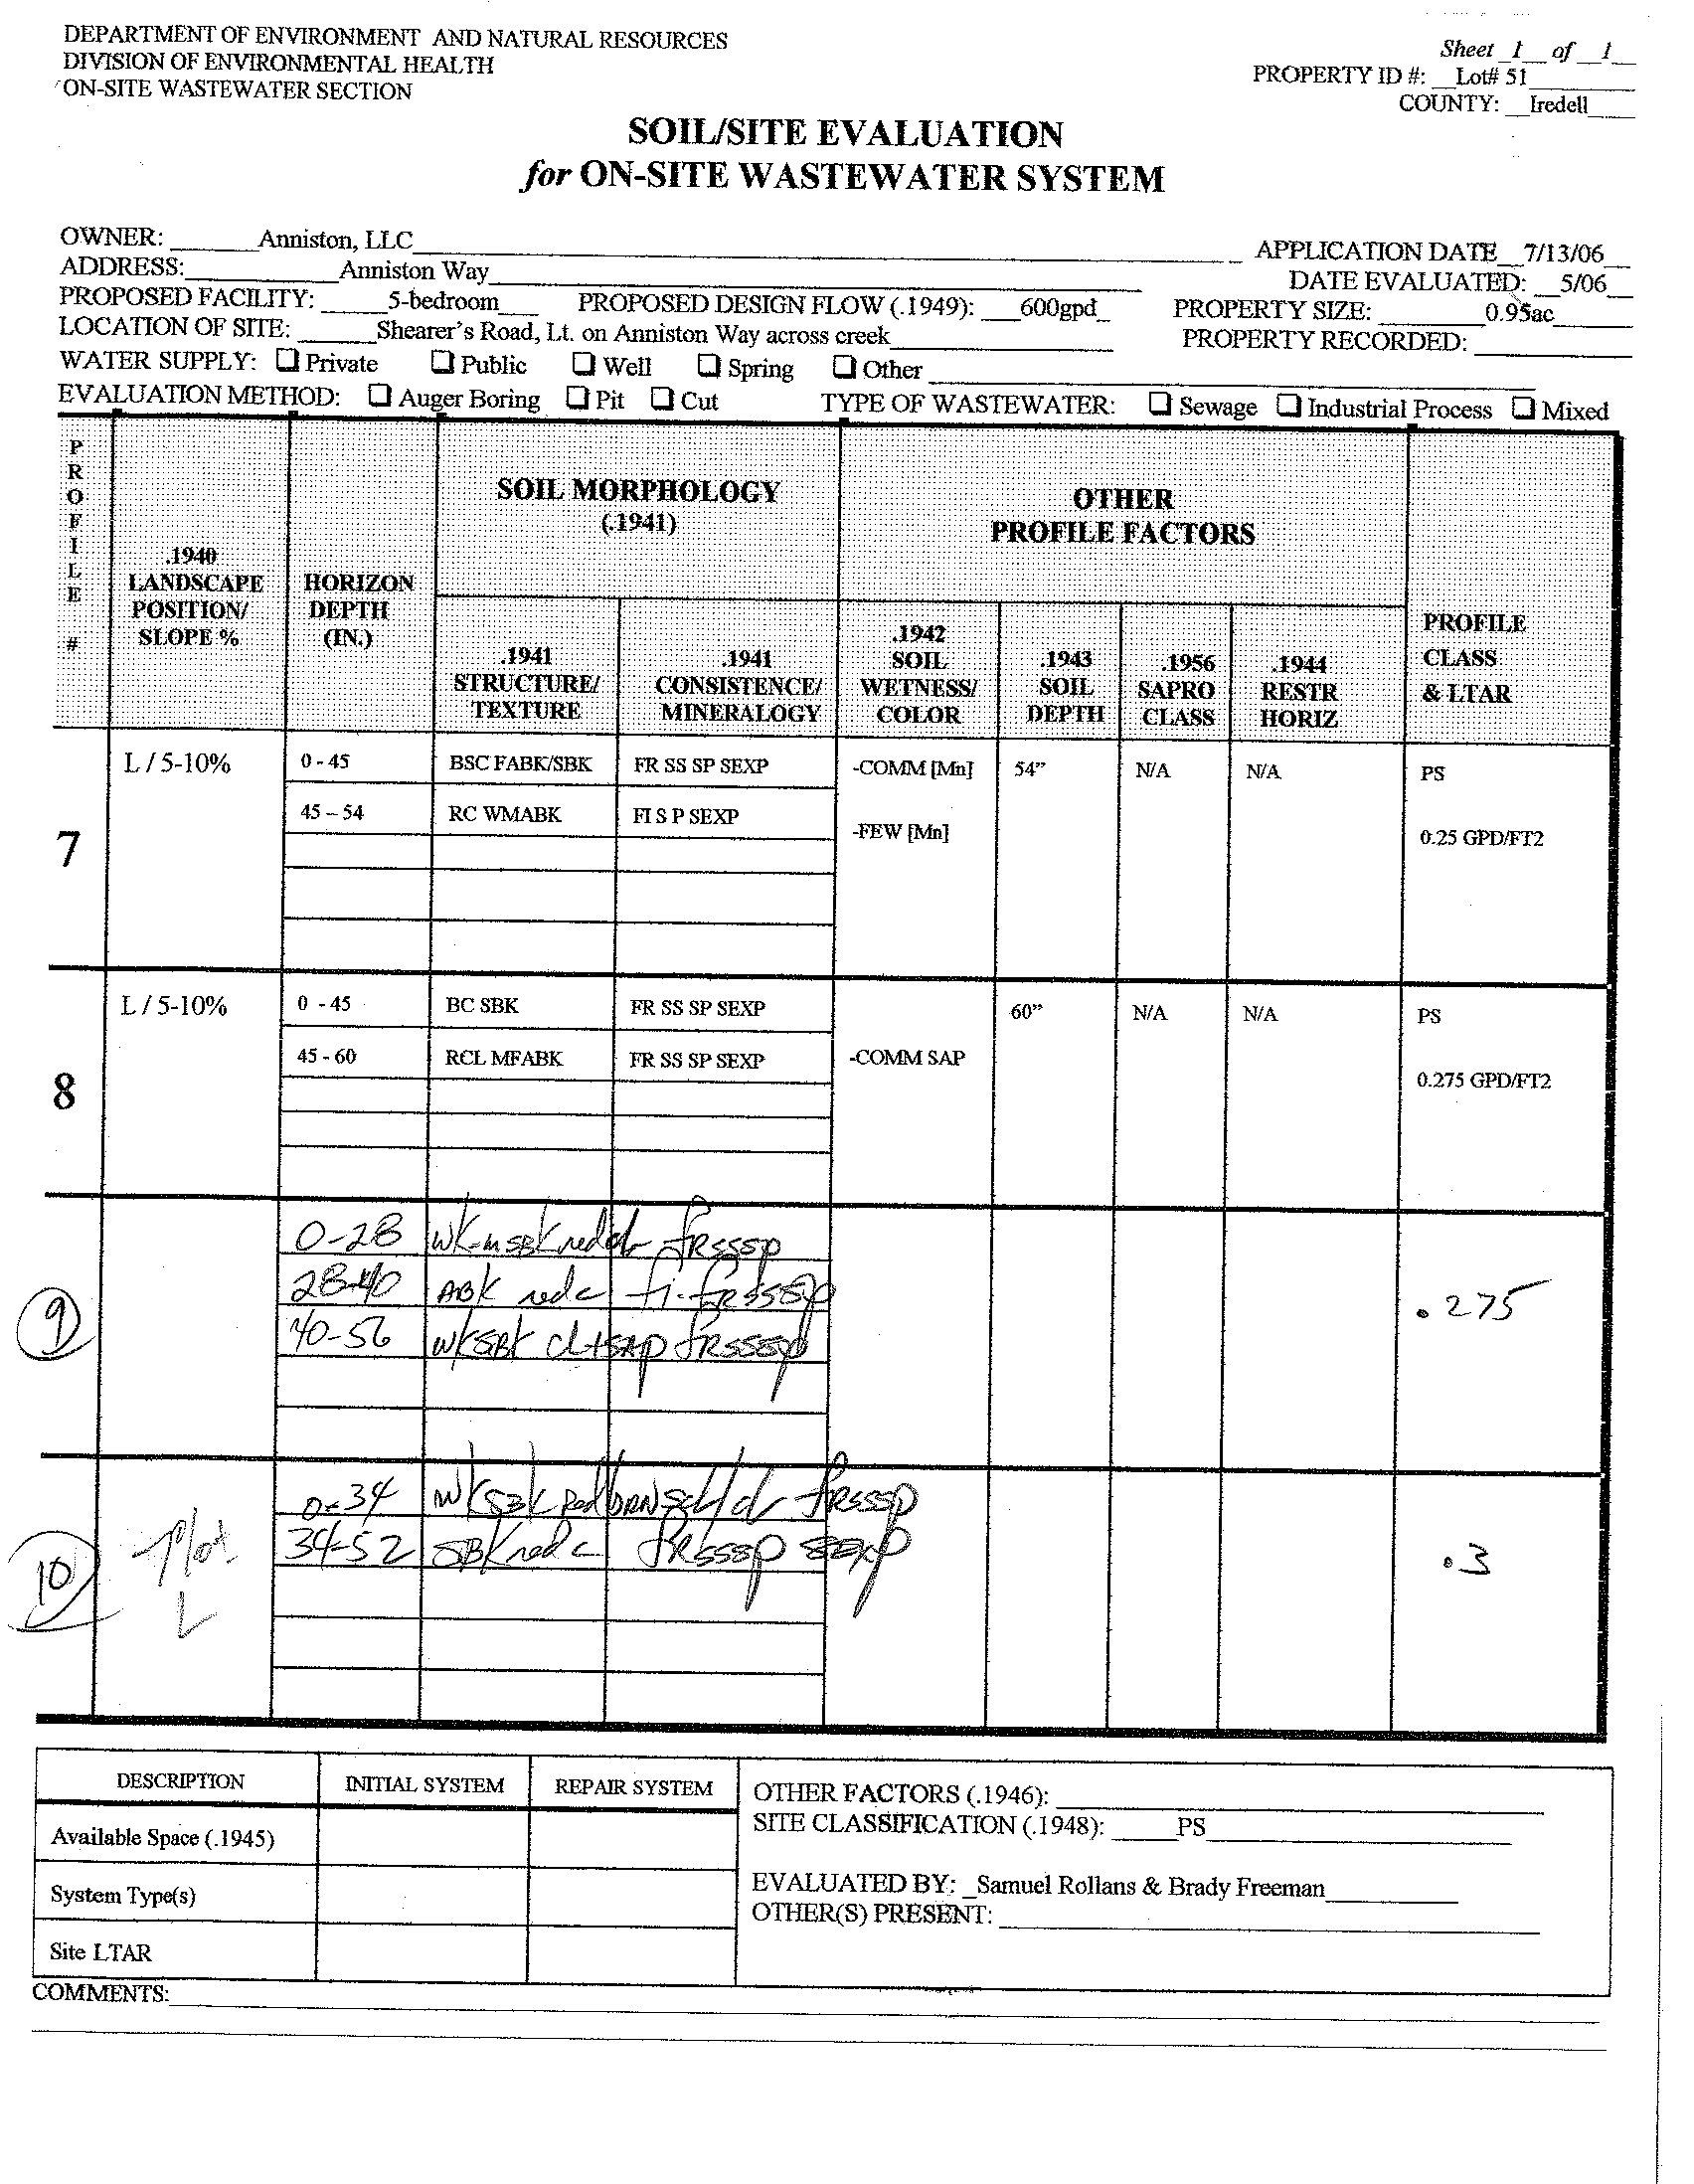 DEPARTMENT OF ENVIRONMENT AND NATURAL RESOURCES
DIVISION OF ENVIRONMENTAL HEALTH
ON-SITE WASTEWATER SECTION
Sheet 1 of 1
PROPERTY ID #: Lot# 51
COUNTY: Iredell
SOIL/SITE EVALUATION
for ON-SITE WASTEWATER SYSTEM
OWNER: Anniston, LLC
APPLICATION DATE 7/13/06
ADDRESS: Anniston Way
DATE EVALUATED: 5/06
PROPOSED FACILITY: 5-bedroom PROPOSED DESIGN FLOW (.1949): 600gpd PROPERTY SIZE: 0.95ac
LOCATION OF SITE: Shearer's Road, Lt. on Anniston Way across creek PROPERTY RECORDED:
WATER SUPPLY: ❑ Private ❑ Public ❑ Well ❑ Spring ❑ Other
EVALUATION METHOD: ❑ Auger Boring ❑ Pit ❑ Cut TYPE OF WASTEWATER: ❑ Sewage ❑ Industrial Process ❑ Mixed
PROFILE #
.1940 LANDSCAPE POSITION/ SLOPE %
HORIZON DEPTH (IN.)
SOIL MORPHOLOGY (.1941)
OTHER PROFILE FACTORS
.1941 STRUCTURE/ TEXTURE
.1941 CONSISTENCE/ MINERALOGY
.1942 SOIL WETNESS/ COLOR
.1943 SOIL DEPTH
.1956 SAPRO CLASS
.1944 RESTR HORIZ
PROFILE CLASS & LTAR
7
L / 5-10%
0 - 45 BSC FABK/SBK FR SS SP SEXP -COMM [Mn] 54" N/A N/A PS
45 – 54 RC WMABK FI S P SEXP -FEW [Mn] 0.25 GPD/FT2
8
L / 5-10%
0 - 45 BC SBK FR SS SP SEXP 60" N/A N/A PS
45 - 60 RCL MFABK FR SS SP SEXP -COMM SAP 0.275 GPD/FT2
9
0-28 WK-mSBK red cl FRSSSP
28-40 ABK red c fi-frSSSP
40-56 WKSBK cl+SAP FRSSSP
.275
10
L
0-34 WKSBK Red/BRN scl/cl FRSSSP
34-52 SBK red c FRSSSP SEXP
.3
DESCRIPTION INITIAL SYSTEM REPAIR SYSTEM
Available Space (.1945)
System Type(s)
Site LTAR
OTHER FACTORS (.1946):
SITE CLASSIFICATION (.1948): PS
EVALUATED BY: Samuel Rollans & Brady Freeman
OTHER(S) PRESENT:
COMMENTS: